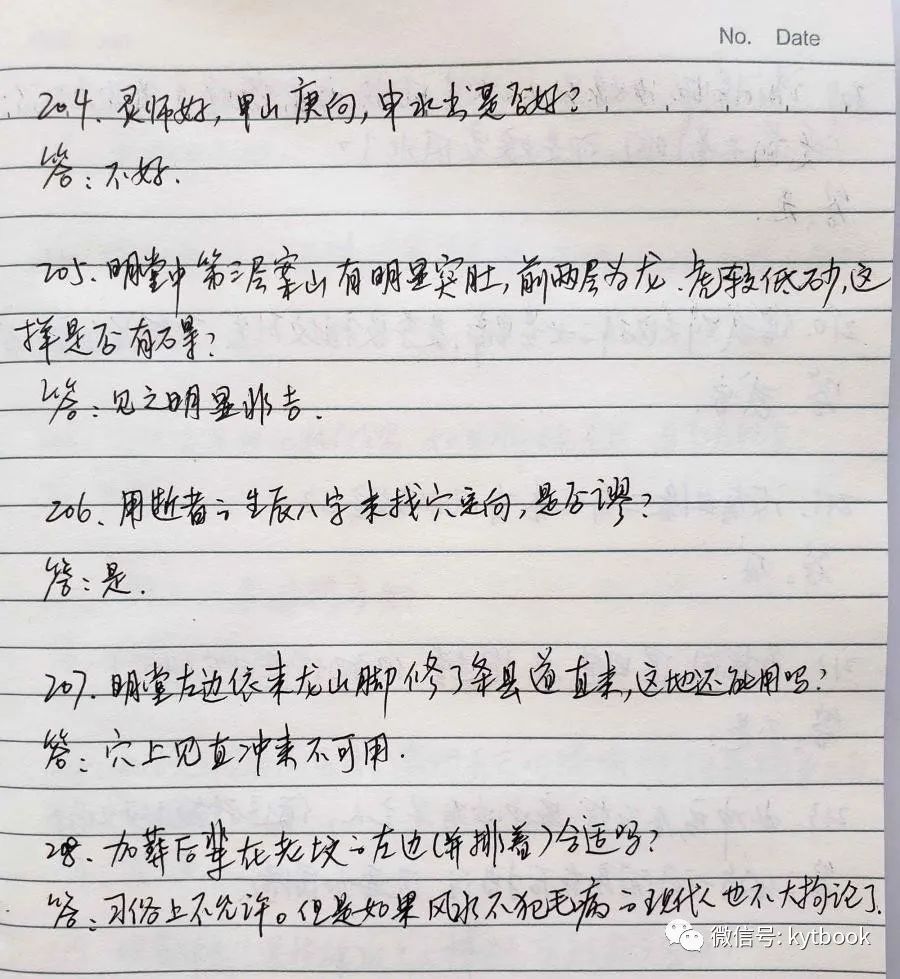 No. Date
204. 灵师好,甲山庚向,申水出是否好?
答:不好.
205. 明堂中第三层案山有明显突肚,前两层为龙、虎较低砂,这
样是否有碍?
答:见之明显非吉.
206、用逝者之生辰八字来找穴定向,是否谬?
答:是.
207. 明堂左边依来龙山脚修了条县道直来,这地还能用吗?
答:穴上见直冲来不可用.
208、加葬后辈在老坟之左边(并排着)合适吗?
答:习俗上不允许。但是如果风水不犯毛病之现代人也不大拘论了.
微信号: kytbook